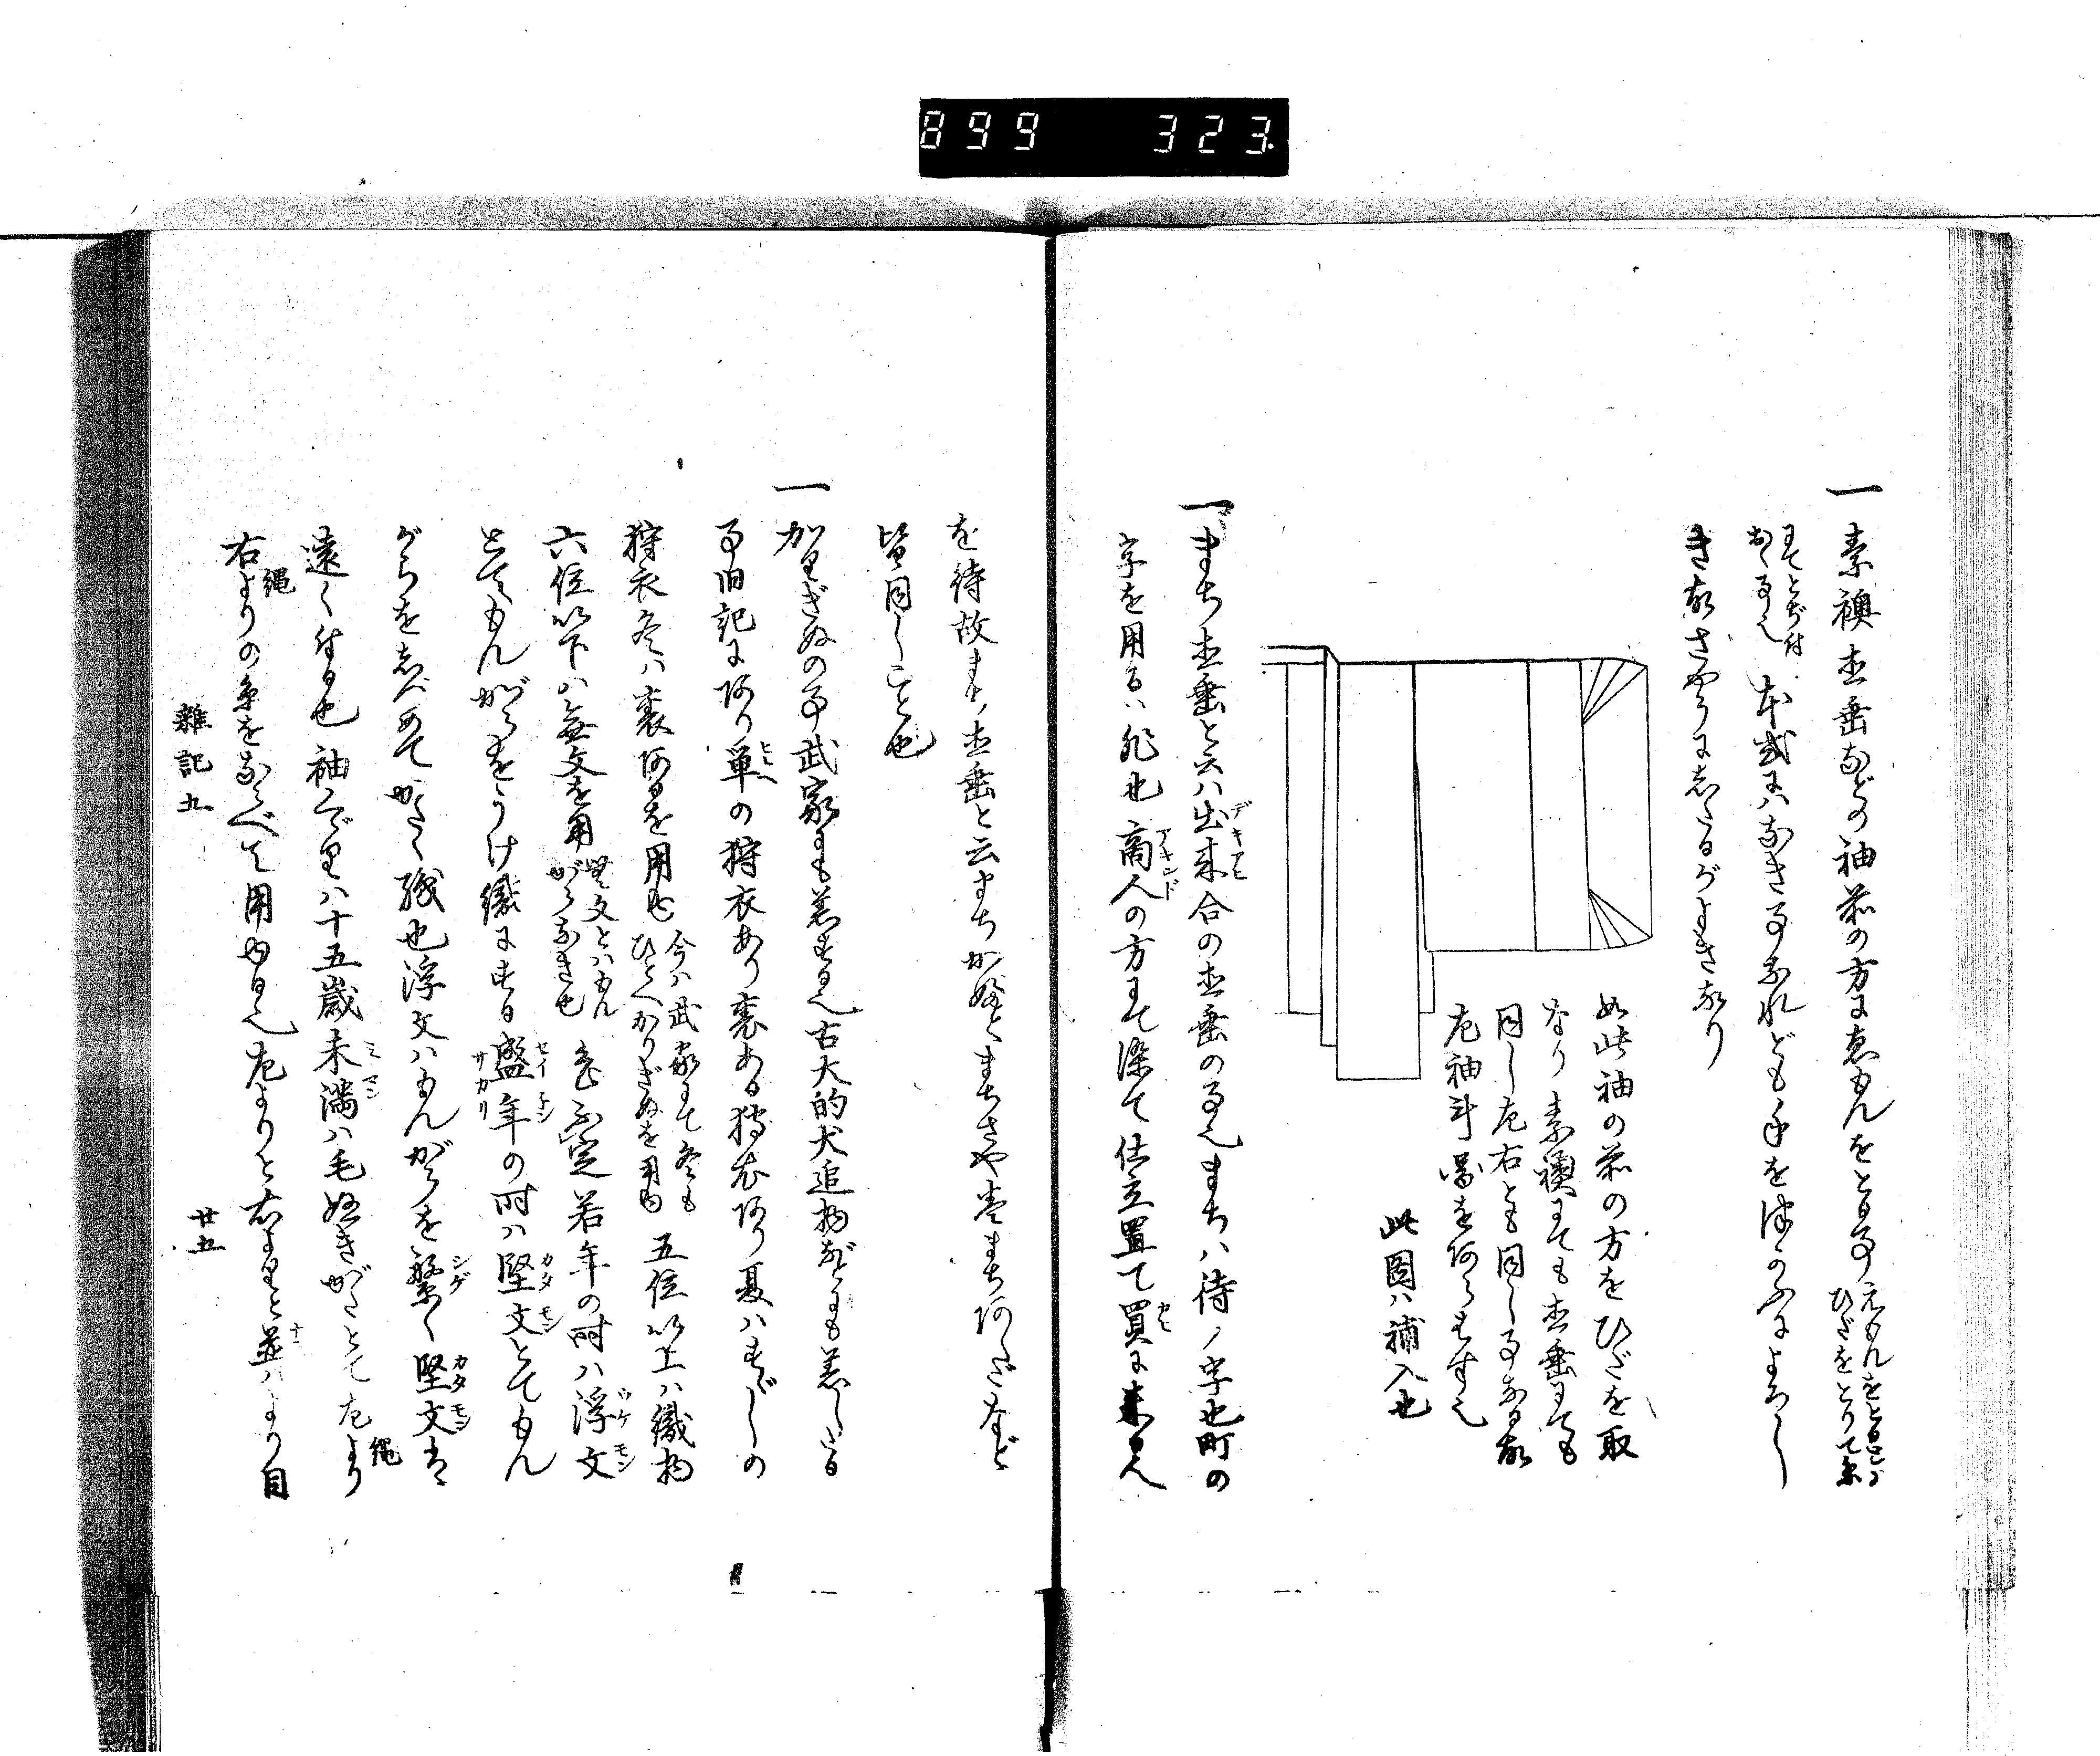 899 323
一 素襖直垂などの袖前の方にゑもんをとる事
ゑもんをとると云ハひだをとりて糸
にてとぢ付おくる也
本式にハなき事なれども手をつかふによろし
き故さやうにしたるがよき也
如此袖の前の方をひだを取
なり素襖にても直垂にても
同し左右とも同し事なる故
左袖斗図をあらハす也
此図ハ補入也
一 まち直垂と云ハ出来合の直垂の事也まちハ待ノ字也町の
デキアヒ
字を用るハ非也商人の方にて染て仕立置て買に来る人
アキンド
カヒ
を待故まち直垂と云まちかぶとまちさや巻まちあふぎなど
皆同しこと也
一 かりぎぬの事武家にも着する也古大的犬追物などにも着したる
事旧記にあり単の狩衣あり裏ある狩衣あり夏ハすゞしの
ヒトヘ
狩衣冬ハ裏あるを用也
今ハ武家にて冬も
ひとへかりぎぬを用ゆ
五位以上ハ織物
六位以下ハ無文を用
無文とハもん
がらなき也
色不定若年の時ハ浮文
ウケモン
とてもんがらをうけ織にする盛年の時ハ堅文とてもん
セイネン
サカリ
カタモン
がらをしべめてかたく織也浮文ハもんがらを繁く堅文は
シゲ
カタモン
遠く付る也袖くゝりハ十五歳未満ハ毛ぬきがたとて左より
ミマン
縄
右よりの糸をならべて用ゆる也左よりと右よりと並ハより目
縄
雑記九
廿五